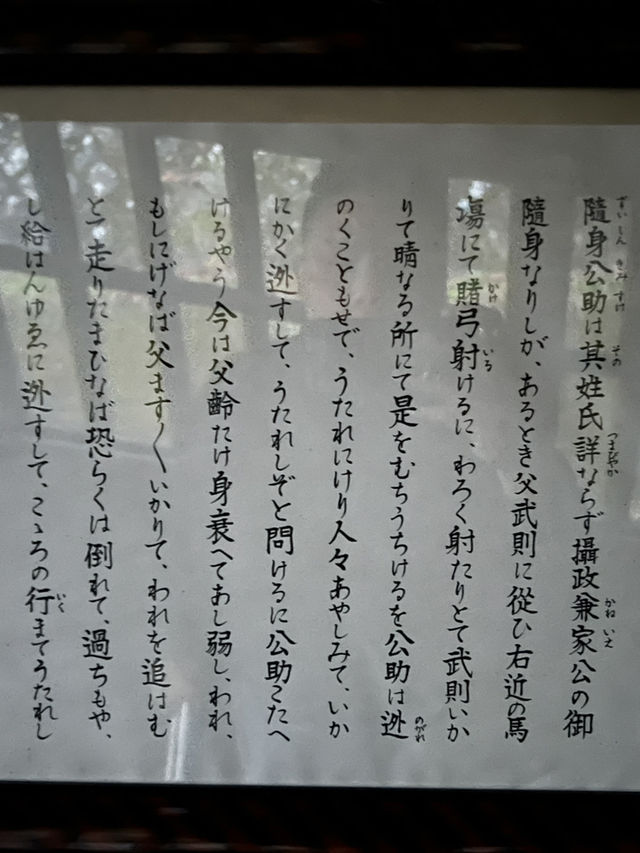 隨身公助は其姓氏詳ならず攝政兼家公の御
隨身なりしが、あるとき父武則に從ひ右近の馬
塲にて賭弓射けるに、わろく射たりとて武則いか
りて晴なる所にて是をむちうちけるを公助は迯
のくこともせで、うたれにけり人々あやしみて、いか
にかく迯ずして、うたれしぞと問けるに公助こたへ
けるやう今は父齡たけ身衰へてあし弱し、われ、
もしにげなば父ます〳〵いかりて、われを追はむ
と走りたまひなば恐らくは倒れて、過ちもや、
し給はんゆゑに迯ずして、こゝろの行までうたれし
ずいしん きみすけ
その
つまびやか
かね いえ
かけ
いる
のがれ
いく